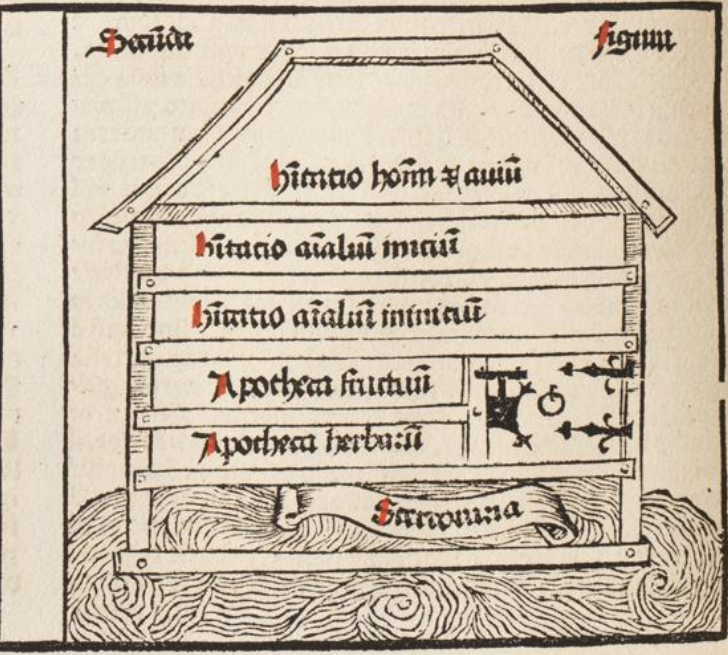 Secūda figura
hītatio hoīm ⁊ auiū
hītatio aīaliū mitiū
hītatio aīaliū īmitiū
Apotheca fructuū
Apotheca herbarū
Stercoraria